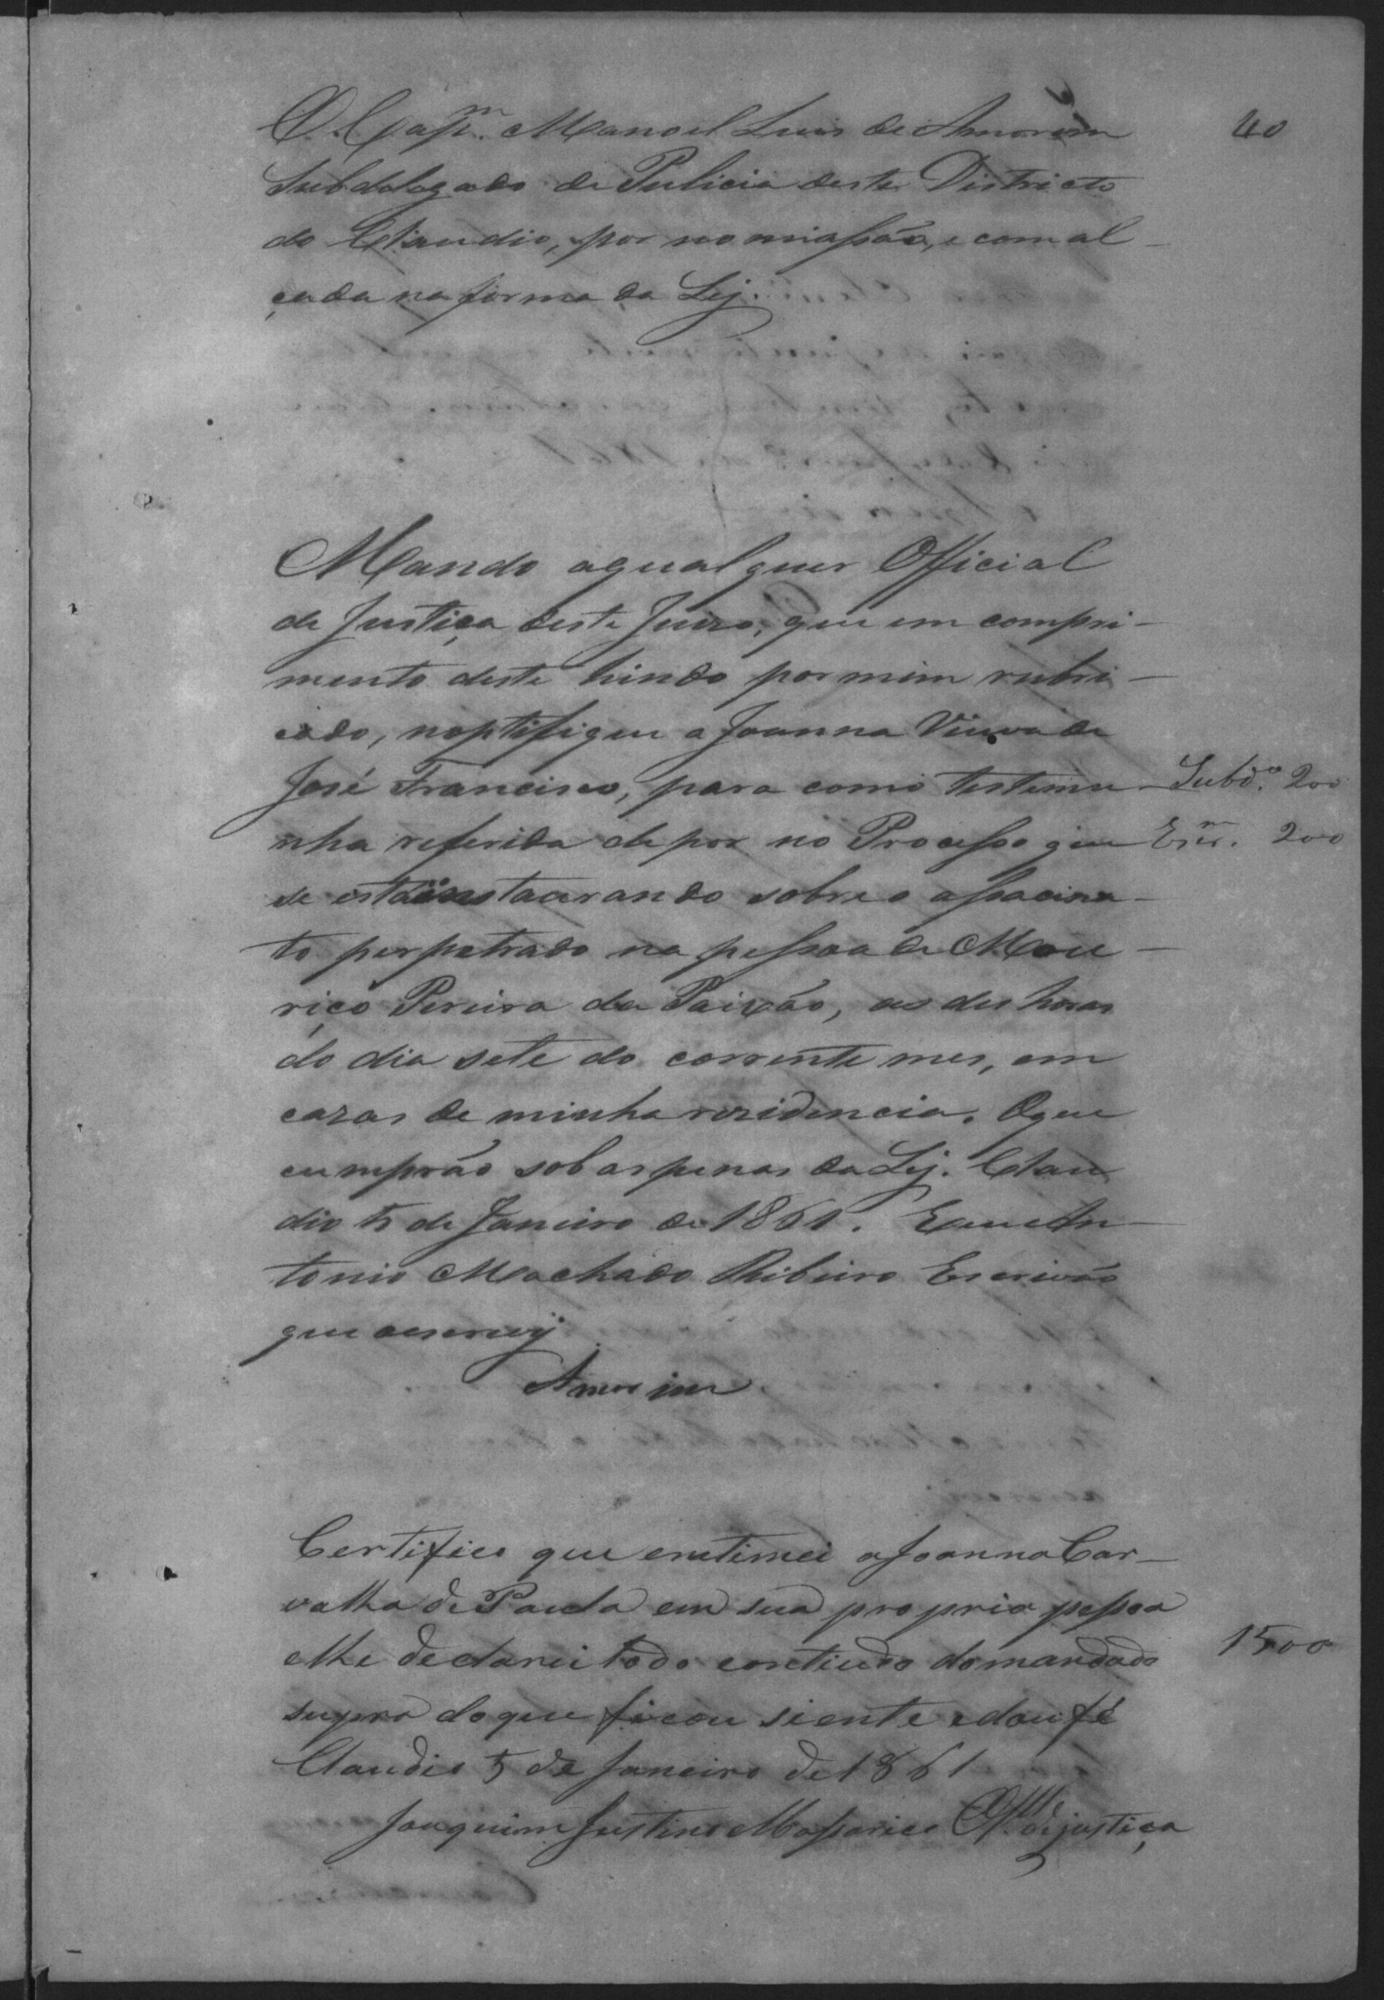 40
O Capᵐ. Manoel Luis de Amorim
Subdelegado de Pulicia deste Districto
do Claudio, por nomiassão, e com al-
çada na forma da Lej.
Mando aqualquer Official
de Justiça deste Juizo, que em compri-
mento deste hindo por mim rubri-
cado, noptifique a Joanna Viuva de
José Francisco, para como testemu-
nha referida depor no Processo que
se está instaurando sobre o assacina-
to perpetrado na pessoa de Mau-
riço Pereira da Paixão, as des horas
do dia sete do corrente mes, em
cazas de minha rezidencia. Oque
cumprão sob as penas da Lej. Clau
dio 5 de Janeiro de 1861. Eu An-
tonio Machado Ribeiro Escrivão
que o escrevÿ
Amorim
Subdᵒ. 200
Esᵐ. 200
Certifico que entimei a Joanna Car-
valha de Paula em sua propria pessoa
elhe declarei todo contiudo do mandado
supra do que ficou siente edou fé
Claudio 5 de Janeiro de 1861
Joaquim Justino Massarico Offᵃˡ de justiça
1500